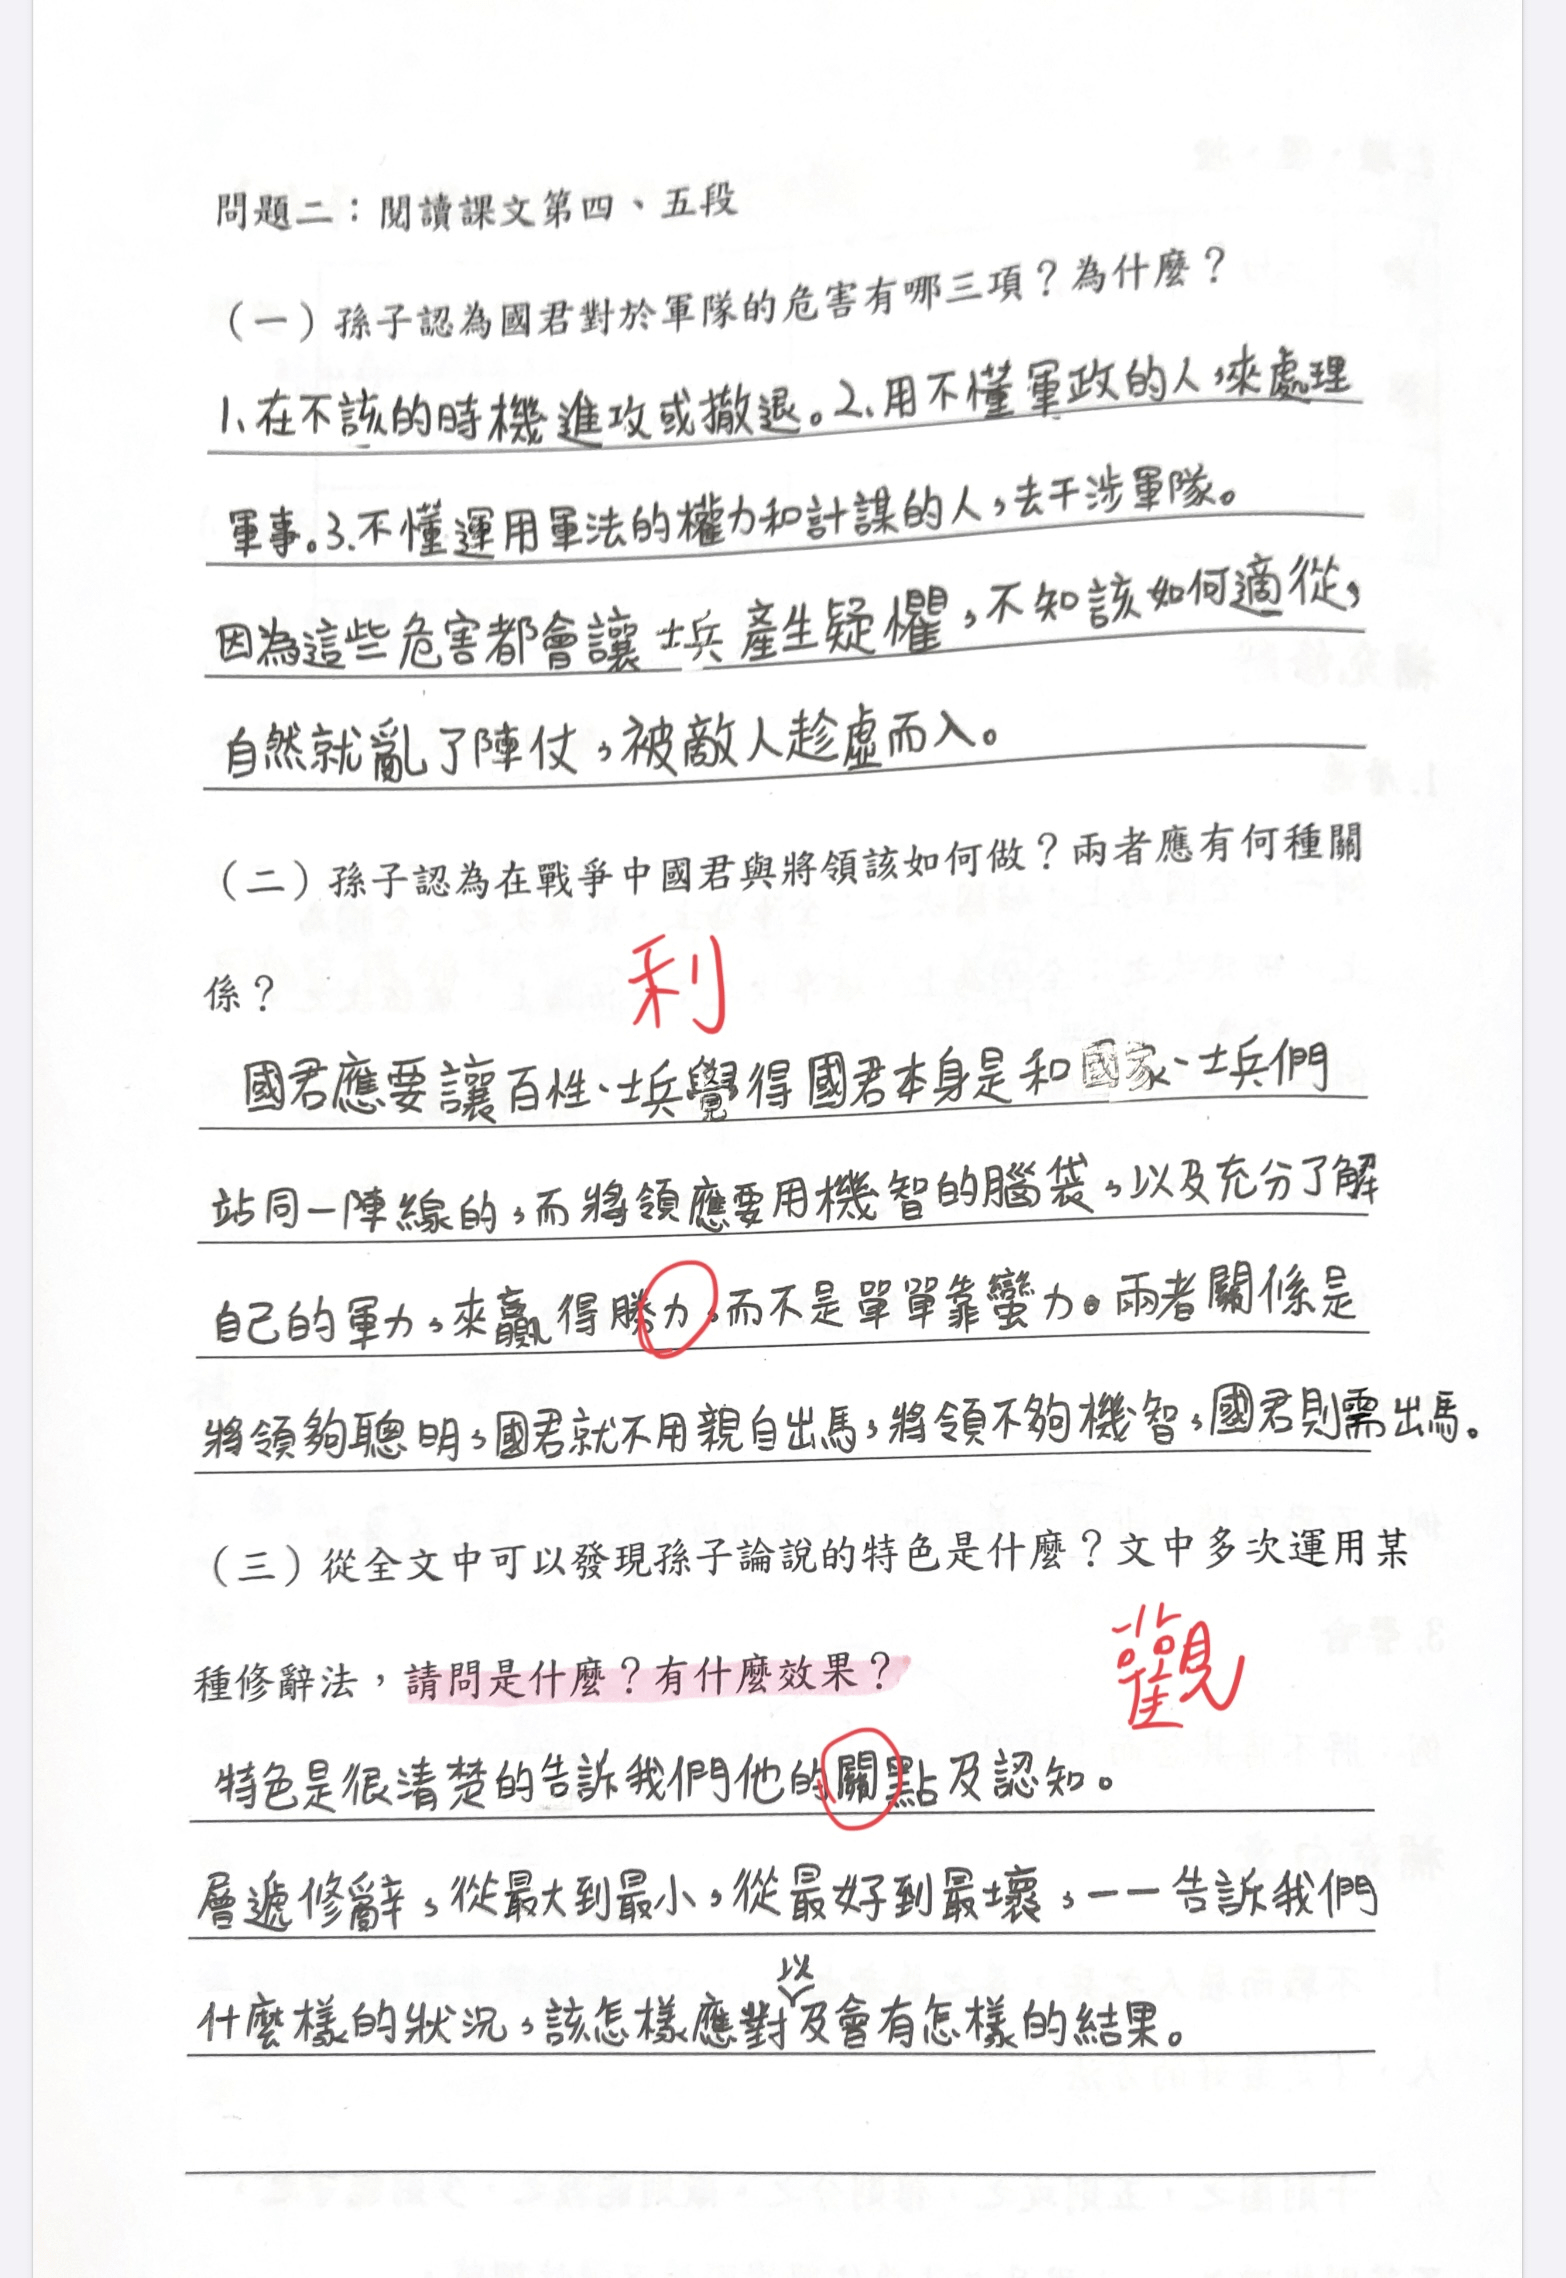 問題二：閱讀課文第四、五段
（一）孫子認為國君對於軍隊的危害有哪三項？為什麼？
1、在不該的時機進攻或撤退。2、用不懂軍政的人，來處理
軍事。3、不懂運用軍法的權力和計謀的人，去干涉軍隊。
因為這些危害都會讓士兵產生疑懼，不知該如何適從，
自然就亂了陣仗，被敵人趁虛而入。
（二）孫子認為在戰爭中國君與將領該如何做？兩者應有何種關
係？
利
國君應要讓百姓、士兵覺得國君本身是和國家、士兵們
站同一陣線的，而將領應要用機智的腦袋，以及充分了解
自己的軍力，來贏得勝力，而不是單單靠蠻力。兩者關係是
將領夠聰明，國君就不用親自出馬，將領不夠機智，國君則需出馬。
（三）從全文中可以發現孫子論說的特色是什麼？文中多次運用某
觀
種修辭法，請問是什麼？有什麼效果？
特色是很清楚的告訴我們他的關點及認知。
層遞修辭，從最大到最小，從最好到最壞，一一告訴我們
以
什麼樣的狀況，該怎樣應對及會有怎樣的結果。